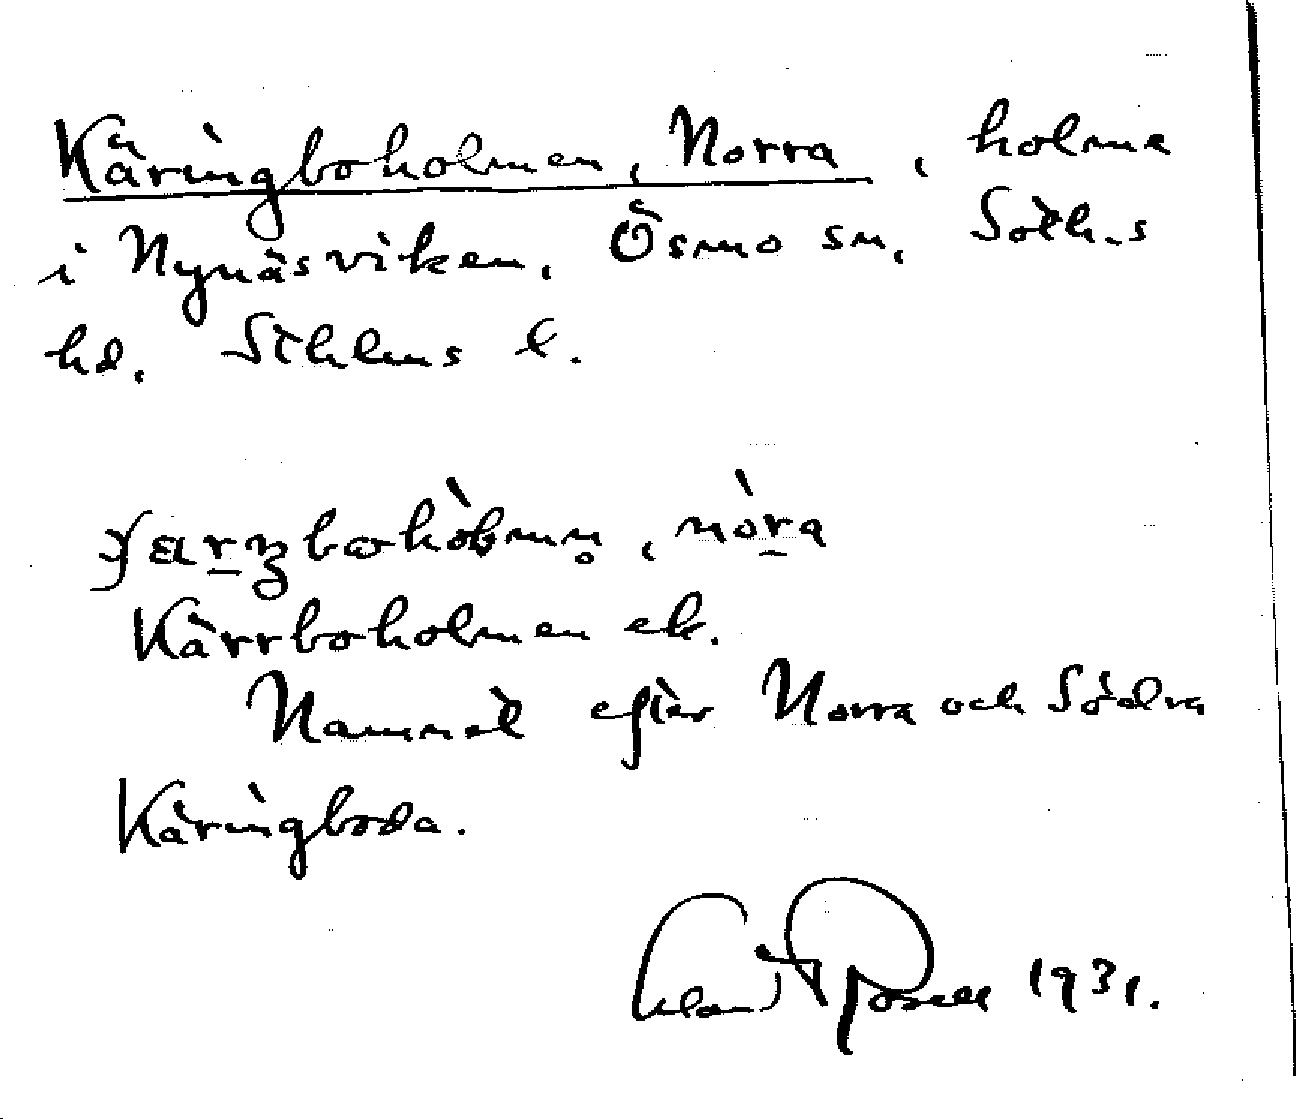 Käringboholmen, Norra, holme
i Nynäsviken, Ösmo sn, Soth.s
hd, Sthlms l.
nòra
Kärrboholmen ek.
Namnet efter Norra och Södra
Käringboda.
1931.